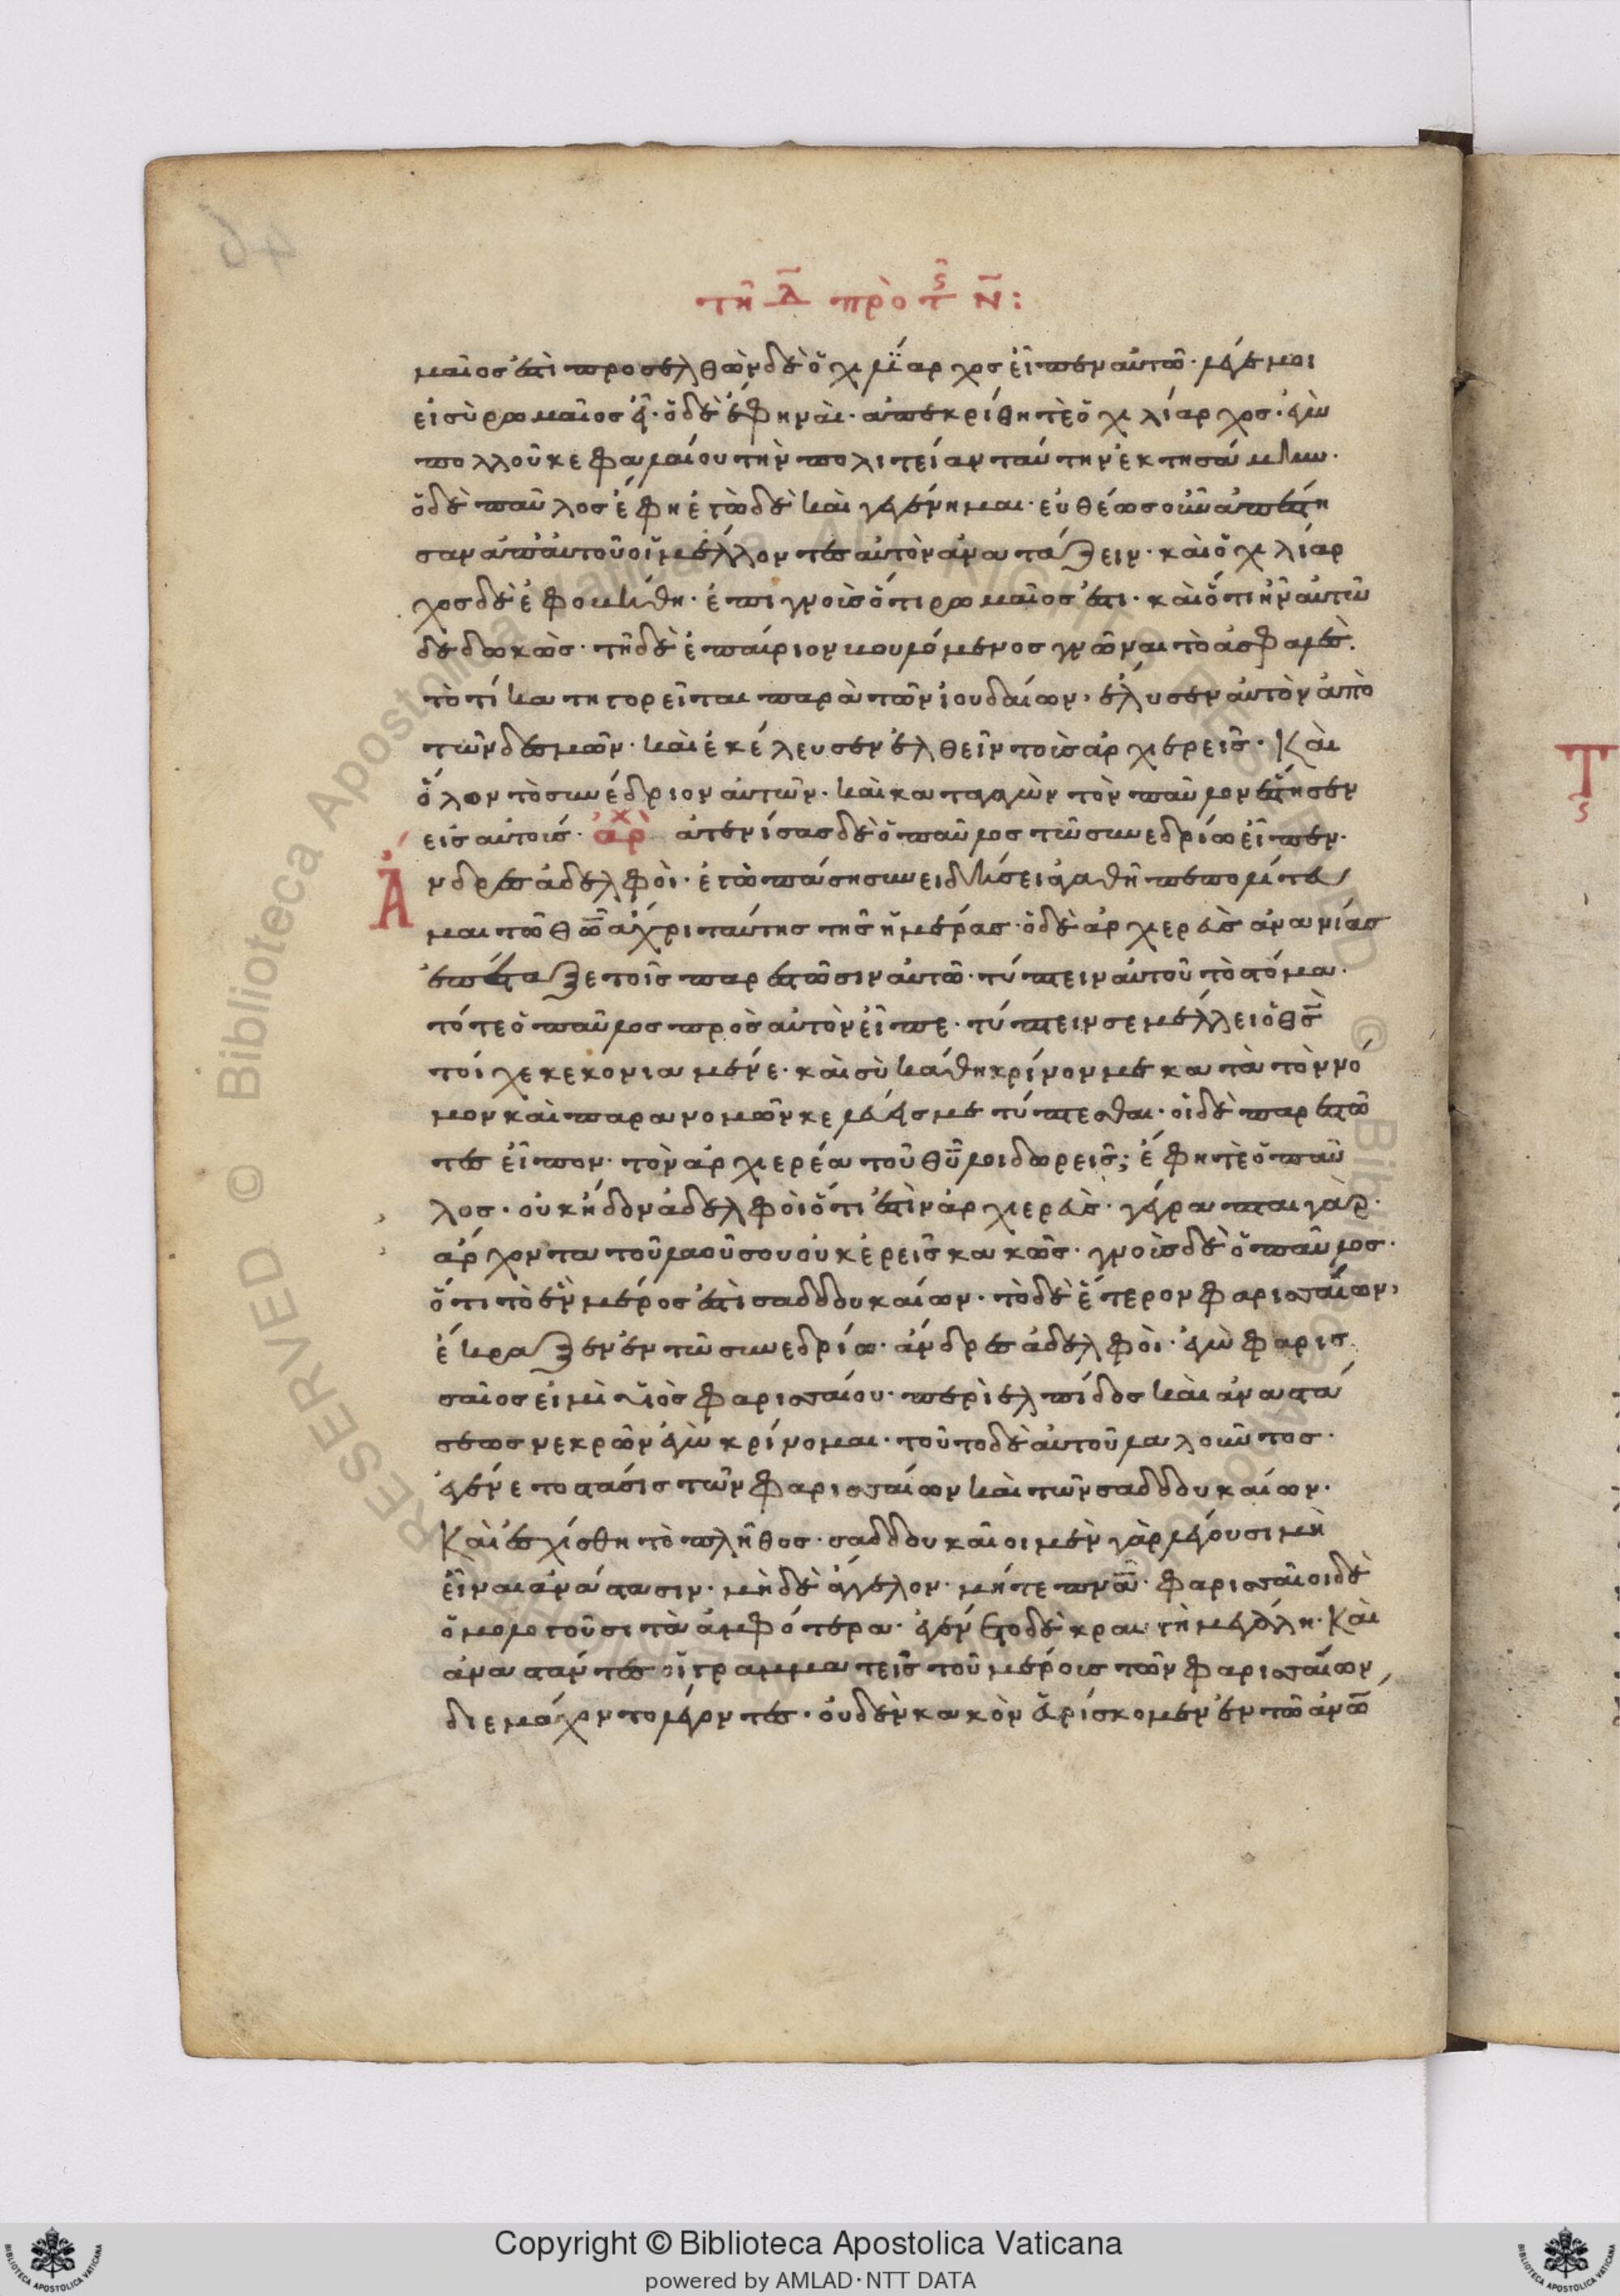 τῇ Δ̄ πρὸ τ͂ς Ν̄:
μαῖος ἐστὶ προσελθὼν δὲ ὁ χιλίαρχος εἶπεν αὐτῶ· λέγε μοι
εἰ σὺ ρωμαῖος εἶ· ὁ δὲ ἔφη ναὶ· ἀπεκρίθη τὲ ὁ χιλίαρχος· ἐγὼ
πολλοῦ κεφαλαίου τὴν πολιτείαν ταύτην ἐκτησάμην·
ὁ δὲ παῦλος ἔφη ἐγὼ δὲ καὶ γεγένημαι· εὐθέως οὖν ἀπέστη
σαν ἀπ' αὐτοῦ οἱ μέλλοντες αὐτὸν ἀνατάζειν· καὶ ὁ χιλίαρ
χος δὲ ἐφοβήθη· ἐπιγνοὺς ὅτι ρωμαῖος ἐστι· καὶ ὅτι ἦν αὐτὸν
δεδωκὼς· τῇ δὲ ἐπαύριον βουλόμενος γνῶναι τὸ ἀσφαλὲς·
τὸ τί κατηγορεῖται παρὰ τῶν ἰουδαίων, ἔλυσεν αὐτὸν ἀπὸ
τῶν δεσμῶν· καὶ ἐκέλευσεν ἐλθεῖν τοὺς ἀρχιερεῖς· Καὶ
ὅλον τὸ συνέδριον αὐτῶν· καὶ καταγαγὼν τὸν παῦλον ἔστησεν
εἰς αὐτούς· ἀρχ ἀτενίσας δὲ ὁ παῦλος τῶ συνεδρίω εἶπεν·
Ἄνδρες ἀδελφοὶ· ἐγὼ πάση συνειδήσει ἀγαθῇ πεπολίτευ
μαι τῶ θῶ ἄχρι ταύτης τῆς ἡμέρας· ὁ δὲ ἀρχιερεὺς ἀνανίας
ἐπέταξε τοῖς παρεστῶσιν αὐτῶ· τύπτειν αὐτοῦ τὸ στόμα·
τότε ὁ παῦλος πρὸς αὐτὸν εἶπε· τύπτειν σε μέλλει ὁ θς
τοίχε κεκονιαμένε· καὶ σὺ κάθη κρίνον με κατὰ τὸν νό
μον καὶ παρανομῶν κελεύεις με τύπτεσθαι· οἱ δὲ παρεστῶ
τες εἶπον· τὸν ἀρχιερέα τοῦ θυ λοιδορεῖς; ἔφη τὲ ὁ παῦ
λος· οὐκ ἤδον ἀδελφοὶ ὅτι ἐστὶν ἀρχιερεὺς· γέγραπται γὰρ·
ἄρχοντα τοῦ λαοῦ σου οὐκ ἐρεῖς κακῶς· γνοὺς δὲ ὁ παῦλος·
ὅτι τὸ ἓν μέρος ἐστὶ σαδδουκαίων· τὸ δὲ ἕτερον φαρισσαίων,
ἔκραξεν ἐν τῶ συνεδρίω· ἄνδρες ἀδελφοὶ· ἐγὼ φαρισ
σαῖος εἰμὶ υἱὸς φαρισσαίου· περὶ ἐλπίδος καὶ ἀναστά
σεως νεκρῶν ἐγὼ κρίνομαι· τοῦτο δὲ αὐτοῦ λαλοῦντος·
ἐγένετο στάσις τῶν φαρισσαίων καὶ τῶν σαδδουκαίων·
Καὶ ἐσχίσθη τὸ πλῆθος· σαδδουκαῖοι μὲν γὰρ λέγουσι μὴ
εἶναι ἀνάστασιν· μὴ δὲ ἄγγελον· μήτε πνα· φαρισσαῖοι δὲ
ὁμολογοῦσι τὰ ἀμφότερα· ἐγένετο δὲ κραυγὴ μεγάλη· Καὶ
ἀναστάντες οἱ γραμματεῖς τοῦ μέρους τῶν φαρισσαίων,
διεμάχοντο λέγοντες· οὐδὲν κακὸν εὑρίσκομεν ἐν τῶ ἀνω
Copyright © Biblioteca Apostolica Vaticana
powered by AMLAD·NTT DATA